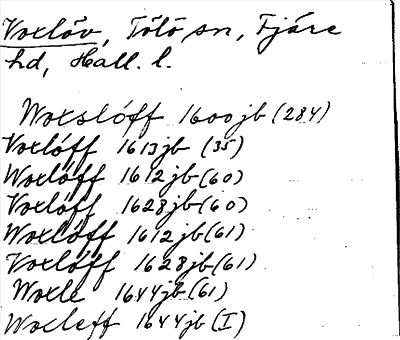 Voxlöv, Tölö sn, Fjäre
hd, Hall. l.
Woxslóff 1600jb (284)
Voxlóff 1613jb (35)
Woxlóff 1612jb (60)
Voxlóff 1628jb (60)
Woxlóff 1612jb (61)
Voxlóff 1628jb (61)
Woxle 1644jb (61)
Woxleff 1644jb (I)